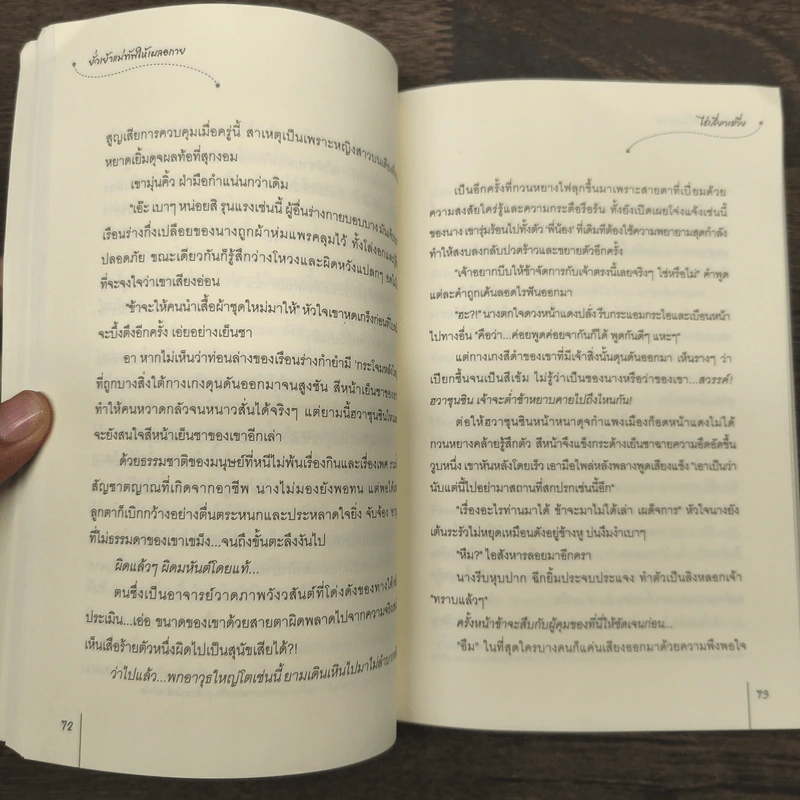 ยั่วเย้าแม่ทัพให้เผลอกาย
สูญเสียการควบคุมเมื่อครู่นี้ สาเหตุเป็นเพราะหญิงสาวบนเตียง
หยาดเยิ้มดุจผลท้อที่สุกงอม
เขามุ่นคิ้ว ฝ่ามือกำแน่นกว่าเดิม
"เอ๊ะ เบาๆ หน่อยสิ รุนแรงเช่นนี้ ผู้อื่นร่างกายบอบบาง
เรือนร่างกึ่งเปลือยของนางถูกผ้าห่มแพรคลุมไว้ ทั้งโล่งอก
ปลอดภัย ขณะเดียวกันก็รู้สึกว่างโหวงและผิดหวังแปลกๆ
ที่จะจงใจว่าเขาเสียงอ่อน
"ข้าจะให้คนนำเสื้อผ้าชุดใหม่มาให้" หัวใจเขาหดเกร็งก่อนที่
จะบึ้งตึงอีกครั้ง เอ่ยอย่างเย็นชา
อา หากไม่เห็นว่าท่อนล่างของเรือนร่างกำยำมี 'กระโจม
ที่ถูกบางสิ่งใต้กางเกงดุนดันออกมาจนสูงชัน สีหน้าเย็นชาของ
ทำให้คนหวาดกลัวจนหนาวสั่นได้จริงๆ แต่ยามนี้ฮวาชุนชิน
จะยังสนใจสีหน้าเย็นชาของเขาอีกเล่า
ด้วยธรรมชาติของมนุษย์ที่หนีไม่พ้นเรื่องกินและเรื่องเพศ
สัญชาตญาณที่เกิดจากอาชีพ นางไม่มองยังพอทน แต่พอได้
ลูกตาก็เบิกกว้างอย่างตื่นตระหนกและประหลาดใจยิ่ง จับจ้อง
ที่ไม่ธรรมดาของเขาเขม็ง...จนถึงขั้นตะลึงงันไป
ผิดแล้วๆ ผิดมหันต์โดยแท้...
ตนซึ่งเป็นอาจารย์วาดภาพวังวสันต์ที่โด่งดังของทางใต้
ประเมิน...เอ่อ ขนาดของเขาด้วยสายตาผิดพลาดไปจากความจริง
เห็นเสือร้ายตัวหนึ่งผิดไปเป็นสุนัขเสียได้?!
ว่าไปแล้ว...พกอาวุธใหญ่โตเช่นนี้ ยามเดินเหินไปมาไม่ลำบาก
72
ไช่เสี่ยวเชวี่ย
เป็นอีกครั้งที่กวนหยางไฟลุกขึ้นมาเพราะสายตาที่เปี่ยมด้วย
ความสงสัยใคร่รู้และความกระตือรือร้น ทั้งยังเปิดเผยโจ่งแจ้งเช่นนี้
ของนาง เขารุ่มร้อนไปทั้งตัว 'พี่น้อง' ที่เดิมทีต้องใช้ความพยายามสุดกำลัง
ทำให้สงบลงกลับปวดร้าวและขยายตัวอีกครั้ง
"เจ้าอยากบีบให้ข้าจัดการกับเจ้าตรงนี้เลยจริงๆ ใช่หรือไม่" คำพูด
แต่ละคำถูกเค้นลอดไรฟันออกมา
"ฮะ?!" นางตกใจดวงหน้าแดงปลั่ง รีบกระแอมกระไอและเบือนหน้า
ไปทางอื่น "คือว่า...ค่อยพูดค่อยจากันก็ได้ พูดกันดีๆ แหะๆ"
แต่กางเกงสีดำของเขาที่มีเจ้าสิ่งนั้นดุนดันออกมา เห็นรางๆ ว่า
เปียกชื้นจนเป็นสีเข้ม ไม่รู้ว่าเป็นของนางหรือว่าของเขา...สวรรค์!
ฮวาชุนชิน เจ้าจะต่ำช้าหยาบคายไปถึงไหนกัน!
ต่อให้ฮวาชุนชินหน้าหนาดุจกำแพงเมืองก็อดหน้าแดงไม่ได้
กวนหยางคล้ายรู้สึกตัว สีหน้าจึงแข็งกระด้างเย็นชาฉายความอึดอัดขึ้น
วูบหนึ่ง เขาหันหลังโดยเร็ว เอามือไพล่หลังพลางพูดเสียงแข็ง "เอาเป็นว่า
นับแต่นี้ไปอย่ามาสถานที่สกปรกเช่นนี้อีก"
"เรื่องอะไรท่านมาได้ ข้าจะมาไม่ได้เล่า เผด็จการ" หัวใจนางยัง
เต้นระรัวไม่หยุดเหมือนดังอยู่ข้างหู บ่นงึมงำเบาๆ
"หืม?" ไอสังหารลอยมาอีกครา
นางรีบหุบปาก ฉีกยิ้มประจบประแจง ทำตัวเป็นลิงหลอกเจ้า
"ทราบแล้วๆ"
ครั้งหน้าข้าจะสืบกับผู้คุมของที่นี่ให้ชัดเจนก่อน...
"อืม" ในที่สุดใครบางคนก็แค่นเสียงออกมาด้วยความพึงพอใจ
73